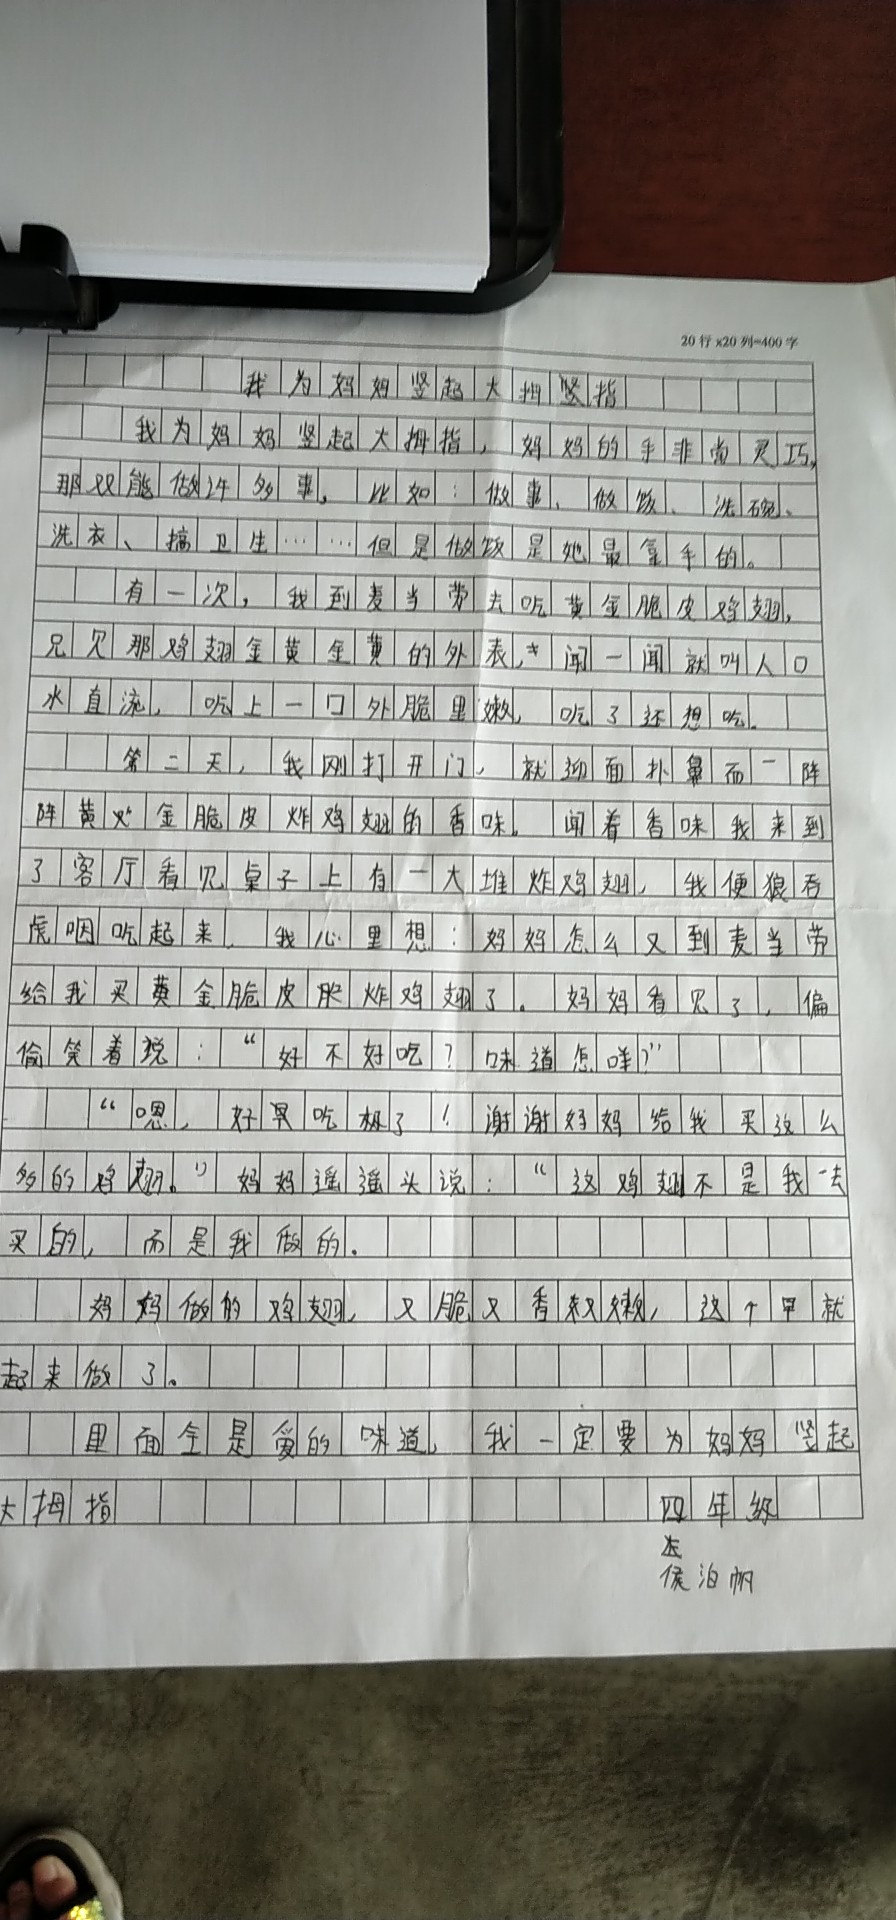 20行×20列=400字
我为妈妈竖起大拇指
我为妈妈竖起大拇指，妈妈的手非常灵巧，
那双能做许多事。比如：做事、做饭、洗碗、
洗衣、搞卫生……但是做饭是她最拿手的。
有一次，我到麦当劳去吃黄金脆皮鸡翅，
只见那鸡翅金黄金黄的外表，闻一闻就叫人口
水直流，吃上一口外脆里嫩，吃了还想吃。
第二天，我刚打开门，就迎面扑鼻而一阵
阵黄金脆皮炸鸡翅的香味。闻着香味我来到
了客厅看见桌子上有一大堆炸鸡翅，我便狼吞
虎咽吃起来，我心里想：妈妈怎么又到麦当劳
给我买黄金脆皮炸鸡翅了。妈妈看见了，偏
偷笑着说：“好不好吃？味道怎咩？”
“嗯，好吃极了！谢谢妈妈给我买这么
多的鸡翅。”妈妈遥遥头说：“这鸡翅不是我去
买的，而是我做的。
妈妈做的鸡翅，又脆又香又嫩，这个早就
起来做了。
里面全是爱的味道，我一定要为妈妈竖起
大拇指
四年级
侯泊帆